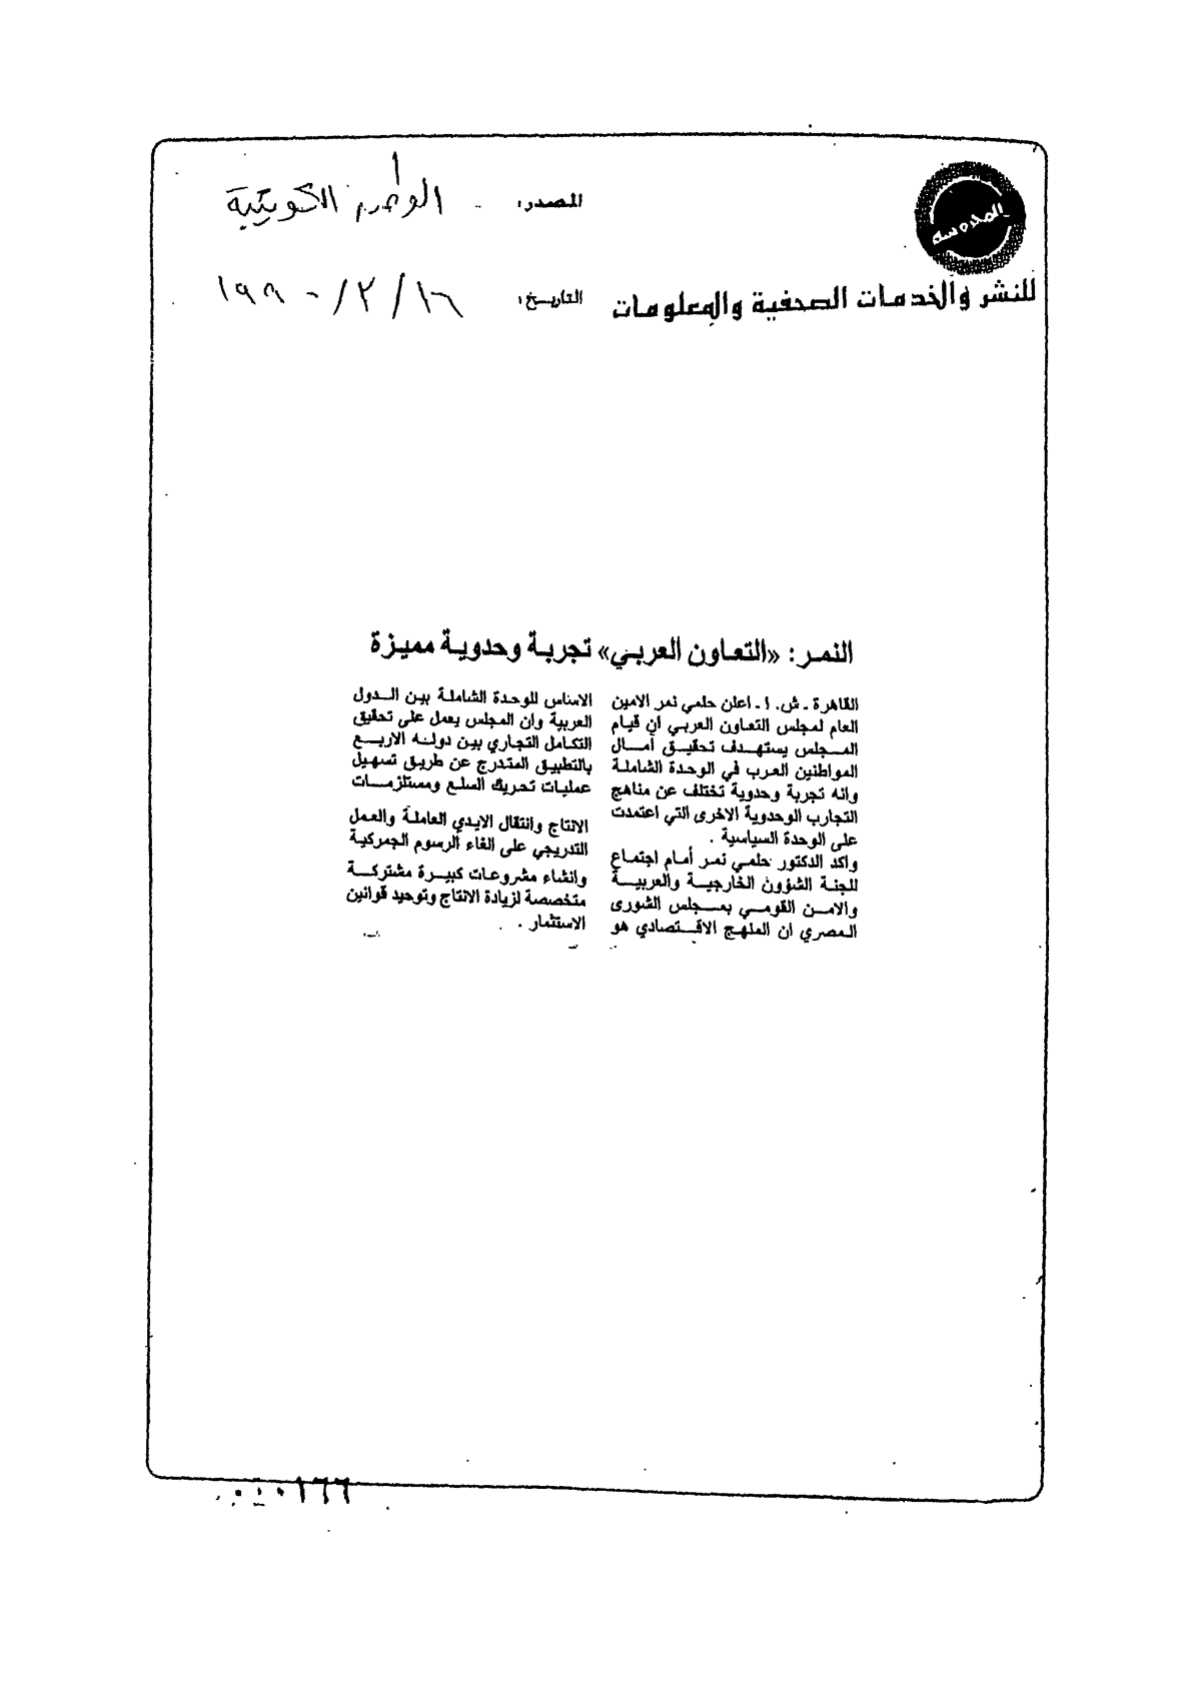 المحروسة
للنشر والخدمات الصحفية والمعلومات
المصدر: الوطن الكويتية
التاريخ: ١٦/٢/١٩٩٠
النمر: «التعاون العربي» تجربة وحدوية مميزة
القاهرة ـ ش . ا ـ اعلن حلمي نمر الامين
العام لمجلس التعاون العربي ان قيام
المجلس يستهدف تحقيق أمال
المواطنين العرب في الوحدة الشاملة
وانه تجربة وحدوية تختلف عن مناهج
التجارب الوحدوية الاخرى التي اعتمدت
على الوحدة السياسية .
واكد الدكتور حلمي نمر أمام اجتماع
للجنة الشؤون الخارجية والعربية
والامن القومي بمجلس الشورى
المصري ان المنهج الاقتصادي هو
الاساس للوحدة الشاملة بين الدول
العربية وان المجلس يعمل على تحقيق
التكامل التجاري بين دوله الاربع
بالتطبيق المتدرج عن طريق تسهيل
عمليات تحريك السلع ومستلزمات
الانتاج وانتقال الايدي العاملة والعمل
التدريجي على الغاء الرسوم الجمركية
وانشاء مشروعات كبيرة مشتركة
متخصصة لزيادة الانتاج وتوحيد قوانين
الاستثمار .